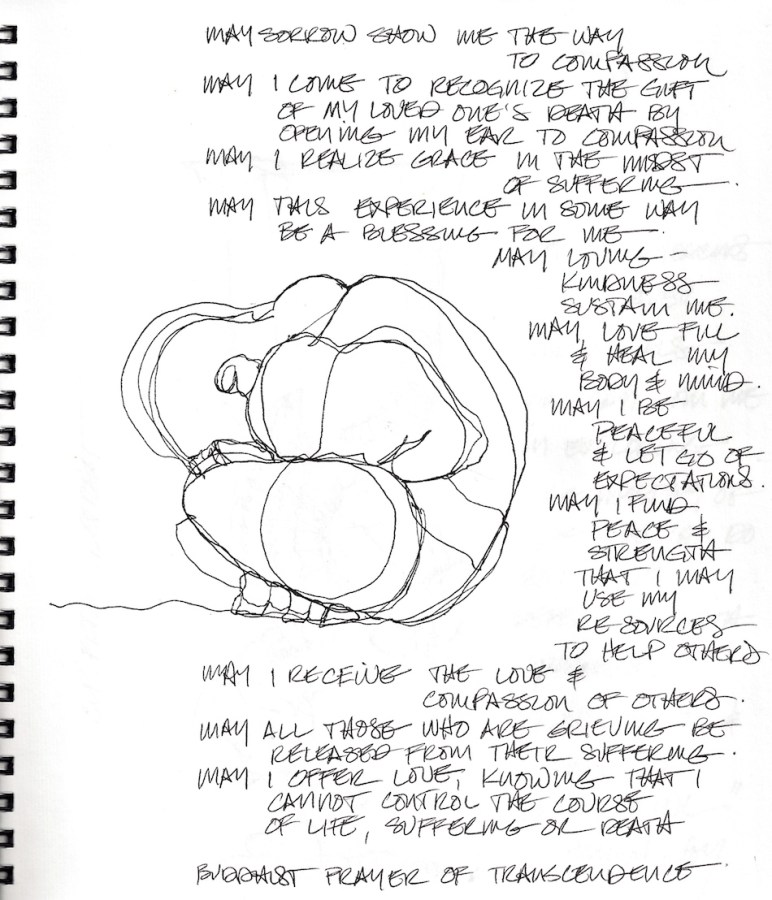 MAY SORROW SHOW ME THE WAY
TO COMPASSION
MAY I COME TO RECOGNIZE THE GIFT
OF MY LOVED ONE'S DEATH BY
OPENING MY EAR TO COMPASSION
MAY I REALIZE GRACE IN THE MIDST
OF SUFFERING.
MAY THIS EXPERIENCE IN SOME WAY
BE A BLESSING FOR ME.
MAY LOVING-
KINDNESS
SUSTAIN ME.
MAY LOVE FILL
& HEAL MY
BODY & MIND.
MAY I BE
PEACEFUL
& LET GO OF
EXPECTATIONS.
MAY I FIND
PEACE &
STRENGTH
THAT I MAY
USE MY
RESOURCES
TO HELP OTHERS
MAY I RECEIVE THE LOVE &
COMPASSION OF OTHERS.
MAY ALL THOSE WHO ARE GRIEVING BE
RELEASED FROM THEIR SUFFERING.
MAY I OFFER LOVE, KNOWING THAT I
CANNOT CONTROL THE COURSE
OF LIFE, SUFFERING OR DEATH
BUDDHIST PRAYER OF TRANSCENDENCE